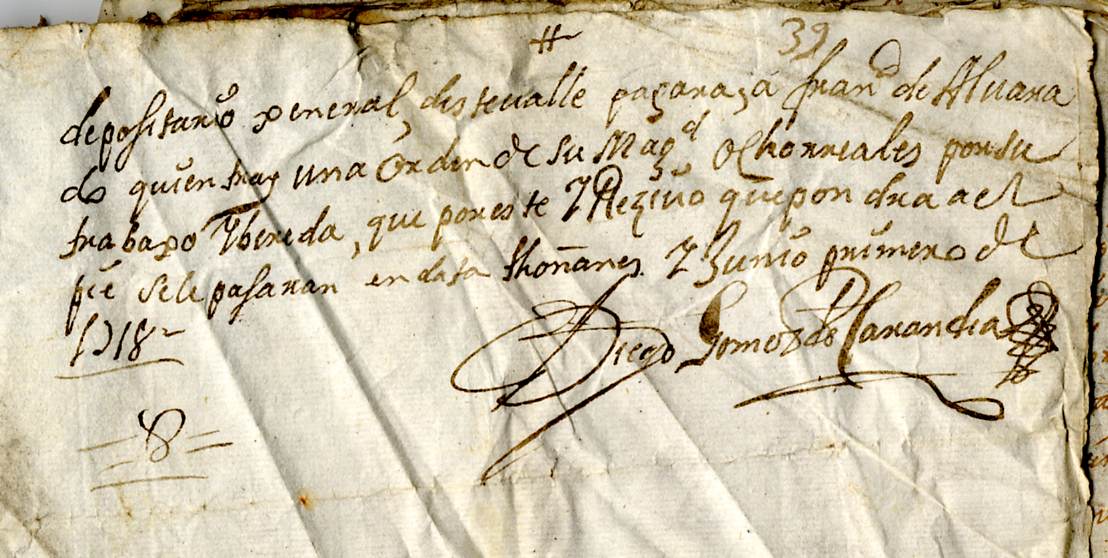 39
depositario xeneral deste valle pagara, a Fran.co de Aluara
do quien trae una Orden de su Mag.d ocho rreales por su
trabaxo Y bereda, que por este Y Rezivo que pondra a el
pie se le pasaran en data thoñanes Y Junio primero de
1718 -
Diego Gomez de Carandia
= 8 =